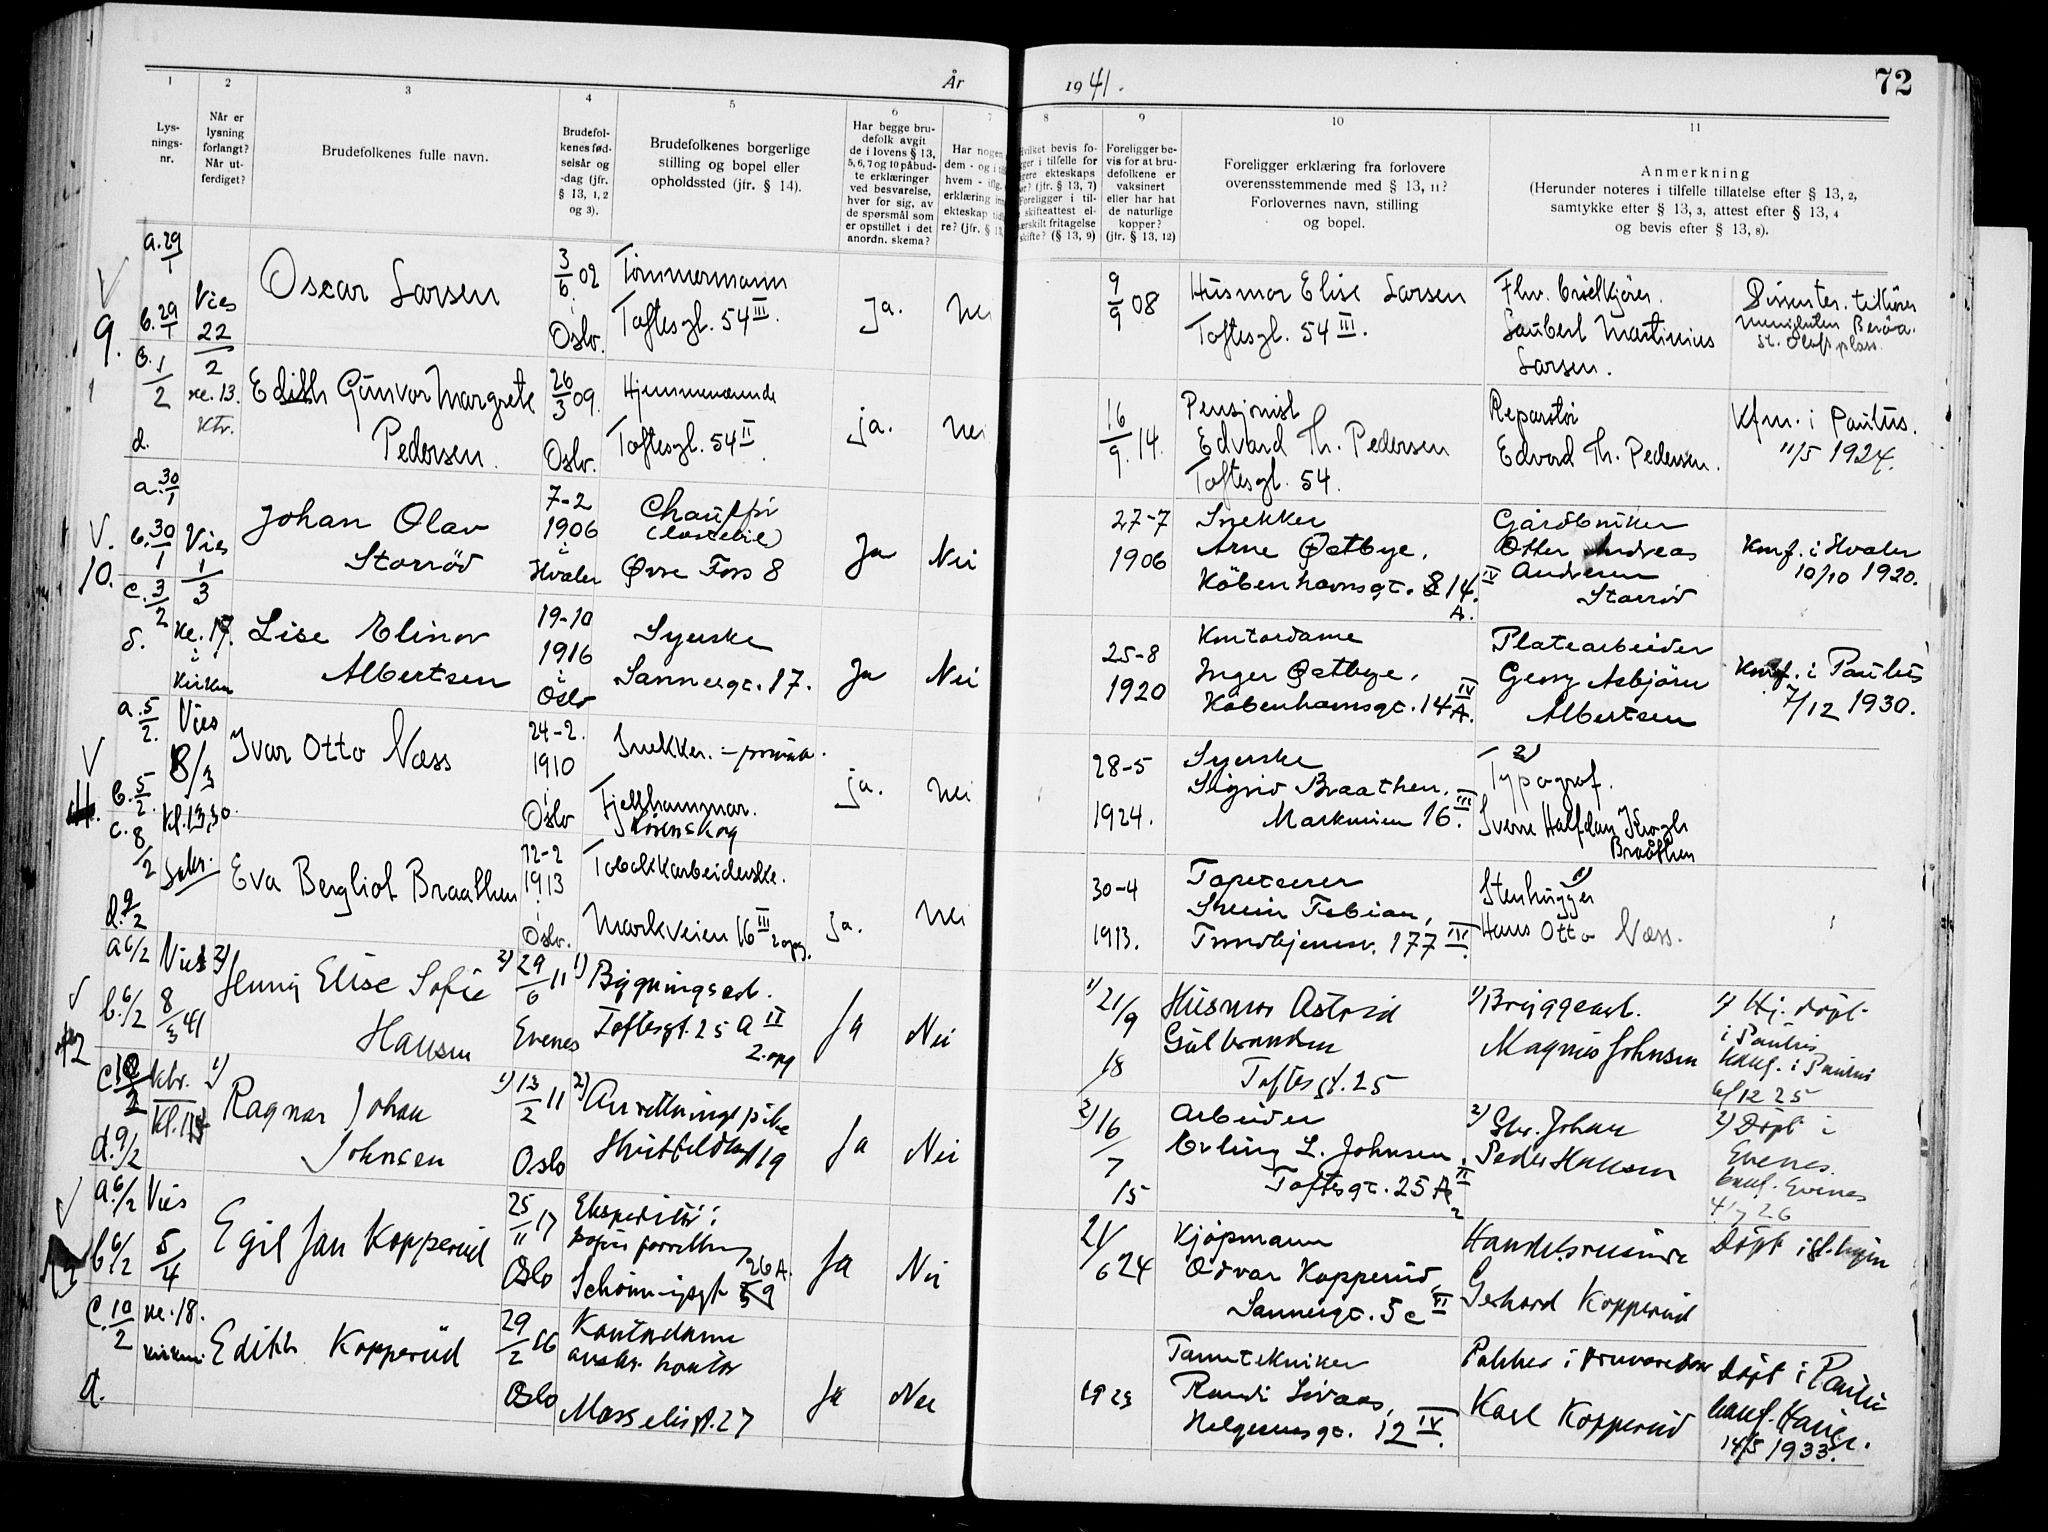 År 1941.
72
1 2 3 4 5 6 7 8 9 10 11
Lys-
nings-
nr.
Når er
lysning
forlangt?
Når ut-
ferdiget?
Brudefolkenes fulle navn.
Brudefol-
kenes fød-
selsår og
-dag (jfr.
§ 13, 1, 2
og 3).
Brudefolkenes borgerlige
stilling og bopel eller
opholdssted (jfr. § 14).
Har begge bru-
defolk avgit
de i lovens § 13,
5, 6, 7 og 10 påbud-
te erklæringer
ved besvarelse,
hver for sig, av
de spørsmål som
er opstillet i det
anordn. skema?
Har nogen
dem - og i
hvem - ifl.
erklæring
ekteskap
re? (jfr. § 13
bevis fo-
i tilfelle for
ekteskaps
(jfr. § 13, 7)
Foreligger i til-
skifteattest el-
særskilt fritagelse
skifte? (§ 13, 9)
Foreligger be-
vis for at bru-
defolkene er
vaksinert
eller har hat
de naturlige
kopper?
(jfr. § 13, 12)
Foreligger erklæring fra forlovere
overensstemmende med § 13, 11?
Forlovernes navn, stilling
og bopel.
Anmerkning
(Herunder noteres i tilfelle tillatelse efter § 13, 2,
samtykke efter § 13, 3, attest efter § 13, 4
og bevis efter § 13, 8).
9.
a. 29/1
b. 29/1
1/2
d.
Vies
22/2
kl. 13.
Ktr.
Oscar Larsen
3/6 02
Oslo.
Tømmermann
Toftesgt. 54 III.
ja.
9/9 08
Husmor Elise Larsen
Toftesgt. 54 III.
Martinius
Larsen.
Edith Gunvor Margrete
Pedersen.
26/3 09.
Oslo.
Hjemmeværende
Toftesgt. 54 II
ja.
16/9. 14.
Pensjonist
Edvard Th. Pedersen
Toftesgt. 54.
Reparatør
Edvard Th. Pedersen.
Kfm. i Paulus.
11/5 1924.
10.
a. 30/1
b. 30/1
c. 3/2
d.
Vies
1/3
kl. 17.
i
kirken
Johan Olav
Storrød
7-2
1906
i
Hvaler
Øvre Foss 8
Ja
Nei
27-7
1906
Snekker
Arne Østbye,
Københavnsgt. 14 IV
A.
Gårdbruker
Andreas
Andersen
Storrød
Konf. i Hvaler
10/10 1920.
Lise Elinor
Albertsen
19-10
1916
i
Oslo
Syerske
Sannergt. 17.
Ja
Nei
25-8
1920
Kontordame
Inger Østbye,
Københavnsgt. 14 IV
A.
Platearbeider
Georg Asbjørn
Albertsen
Konf. i Paulus
7/12 1930.
11.
a. 5/2.
b. 5/2.
c. 8/2
d. 9/2
Vies
8/3
kl. 13,30.
Ivar Otto Næss
24-2.
1910
i
Oslo
Snekker.
Fjellhammar.
Lørenskog
ja.
Nei
28-5
1924.
Syerske
Sigrid Braathen,
Markveien 16. III
2)
Typograf.
Sverre Halfdan Krogh
Braathen
Eva Bergliot Braathen
12-2
1913
i
Oslo.
Tobakkarbeiderske.
Markveien 16 III 2 opg.
ja.
Nei
30-4
1913.
Tapetserer
Fabian,
Trondhjemsv. 177 IV.
1)
Stenhugger
Hans Otto Næss.
12
a 6/2
b. 6/2
c. 10/2
d. 9/2
Vies
8/3 41
ktr.
2) Jenny Elise Sofie
Hansen
2) 29/6 11
Evenes
1) Bygningsarb.
Toftesgt. 25 A II
2. opg
Ja
Nei
1) 21/9
18
Husmor Astrid
Gulbrandsen
Toftesgt. 25
1) Bryggearb.
Magnus Johnsen
1) Hj. døpt
i Paulus
konf. i Paulus
6/12 25
1) Ragnar Johan
Johnsen
1) 13/2 11
Oslo
2) Anretningspike
Huitfeldtsgt 19
Ja
Nei
2) 16/7
15
Arbeider
Erling L. Johnsen,
Toftesgt. 25 A II
2
2) Gbr. Johan
Peder Hansen
2) Døpt i
Evenes.
konf. Evenes
26
13
a. 6/2
b 6/2
c. 10/2
d.
Vies
5/4
kl. 18.
kirken.
Egil Jan Kopperud
25/11 17
Oslo
Ekspeditør i
papirforretning
Schønningsgt 26 A.
Ja
Nei
21/6 24
Kjøpmann
Odvar Kopperud,
Sannergt. 5 c VI
Handelsreisende
Gerhard Kopperud
Edith Kopperud
29/2 16
Oslo
Kontordame
kontor
27
Ja
Nei
1923
Tanntekniker
Randi
Helgesensgt. 12 IV.
Karl Kopperud
Døpt i Paulus
konf. Hauge.
14/5 1933.